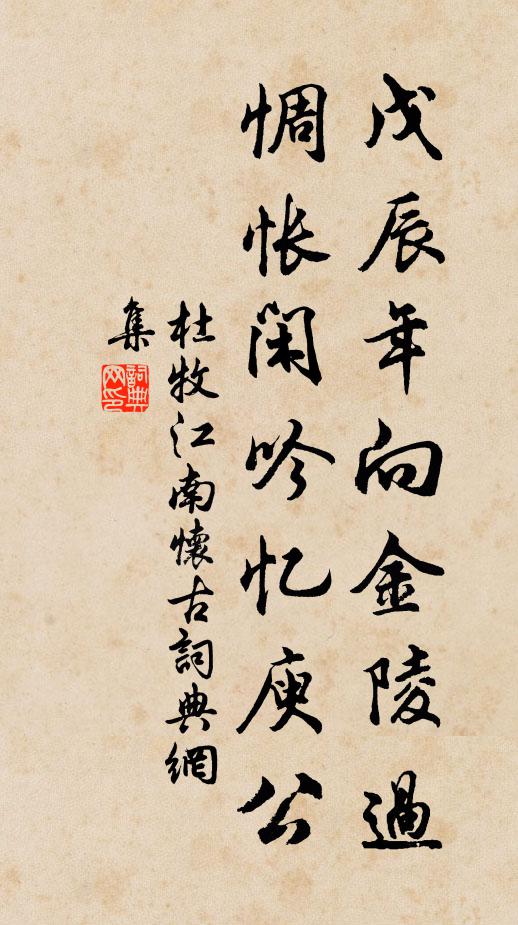 戊辰年向金陵過
惆怅閑吟忆庾公
杜牧江南懷古詞典網
集
詞典
网印